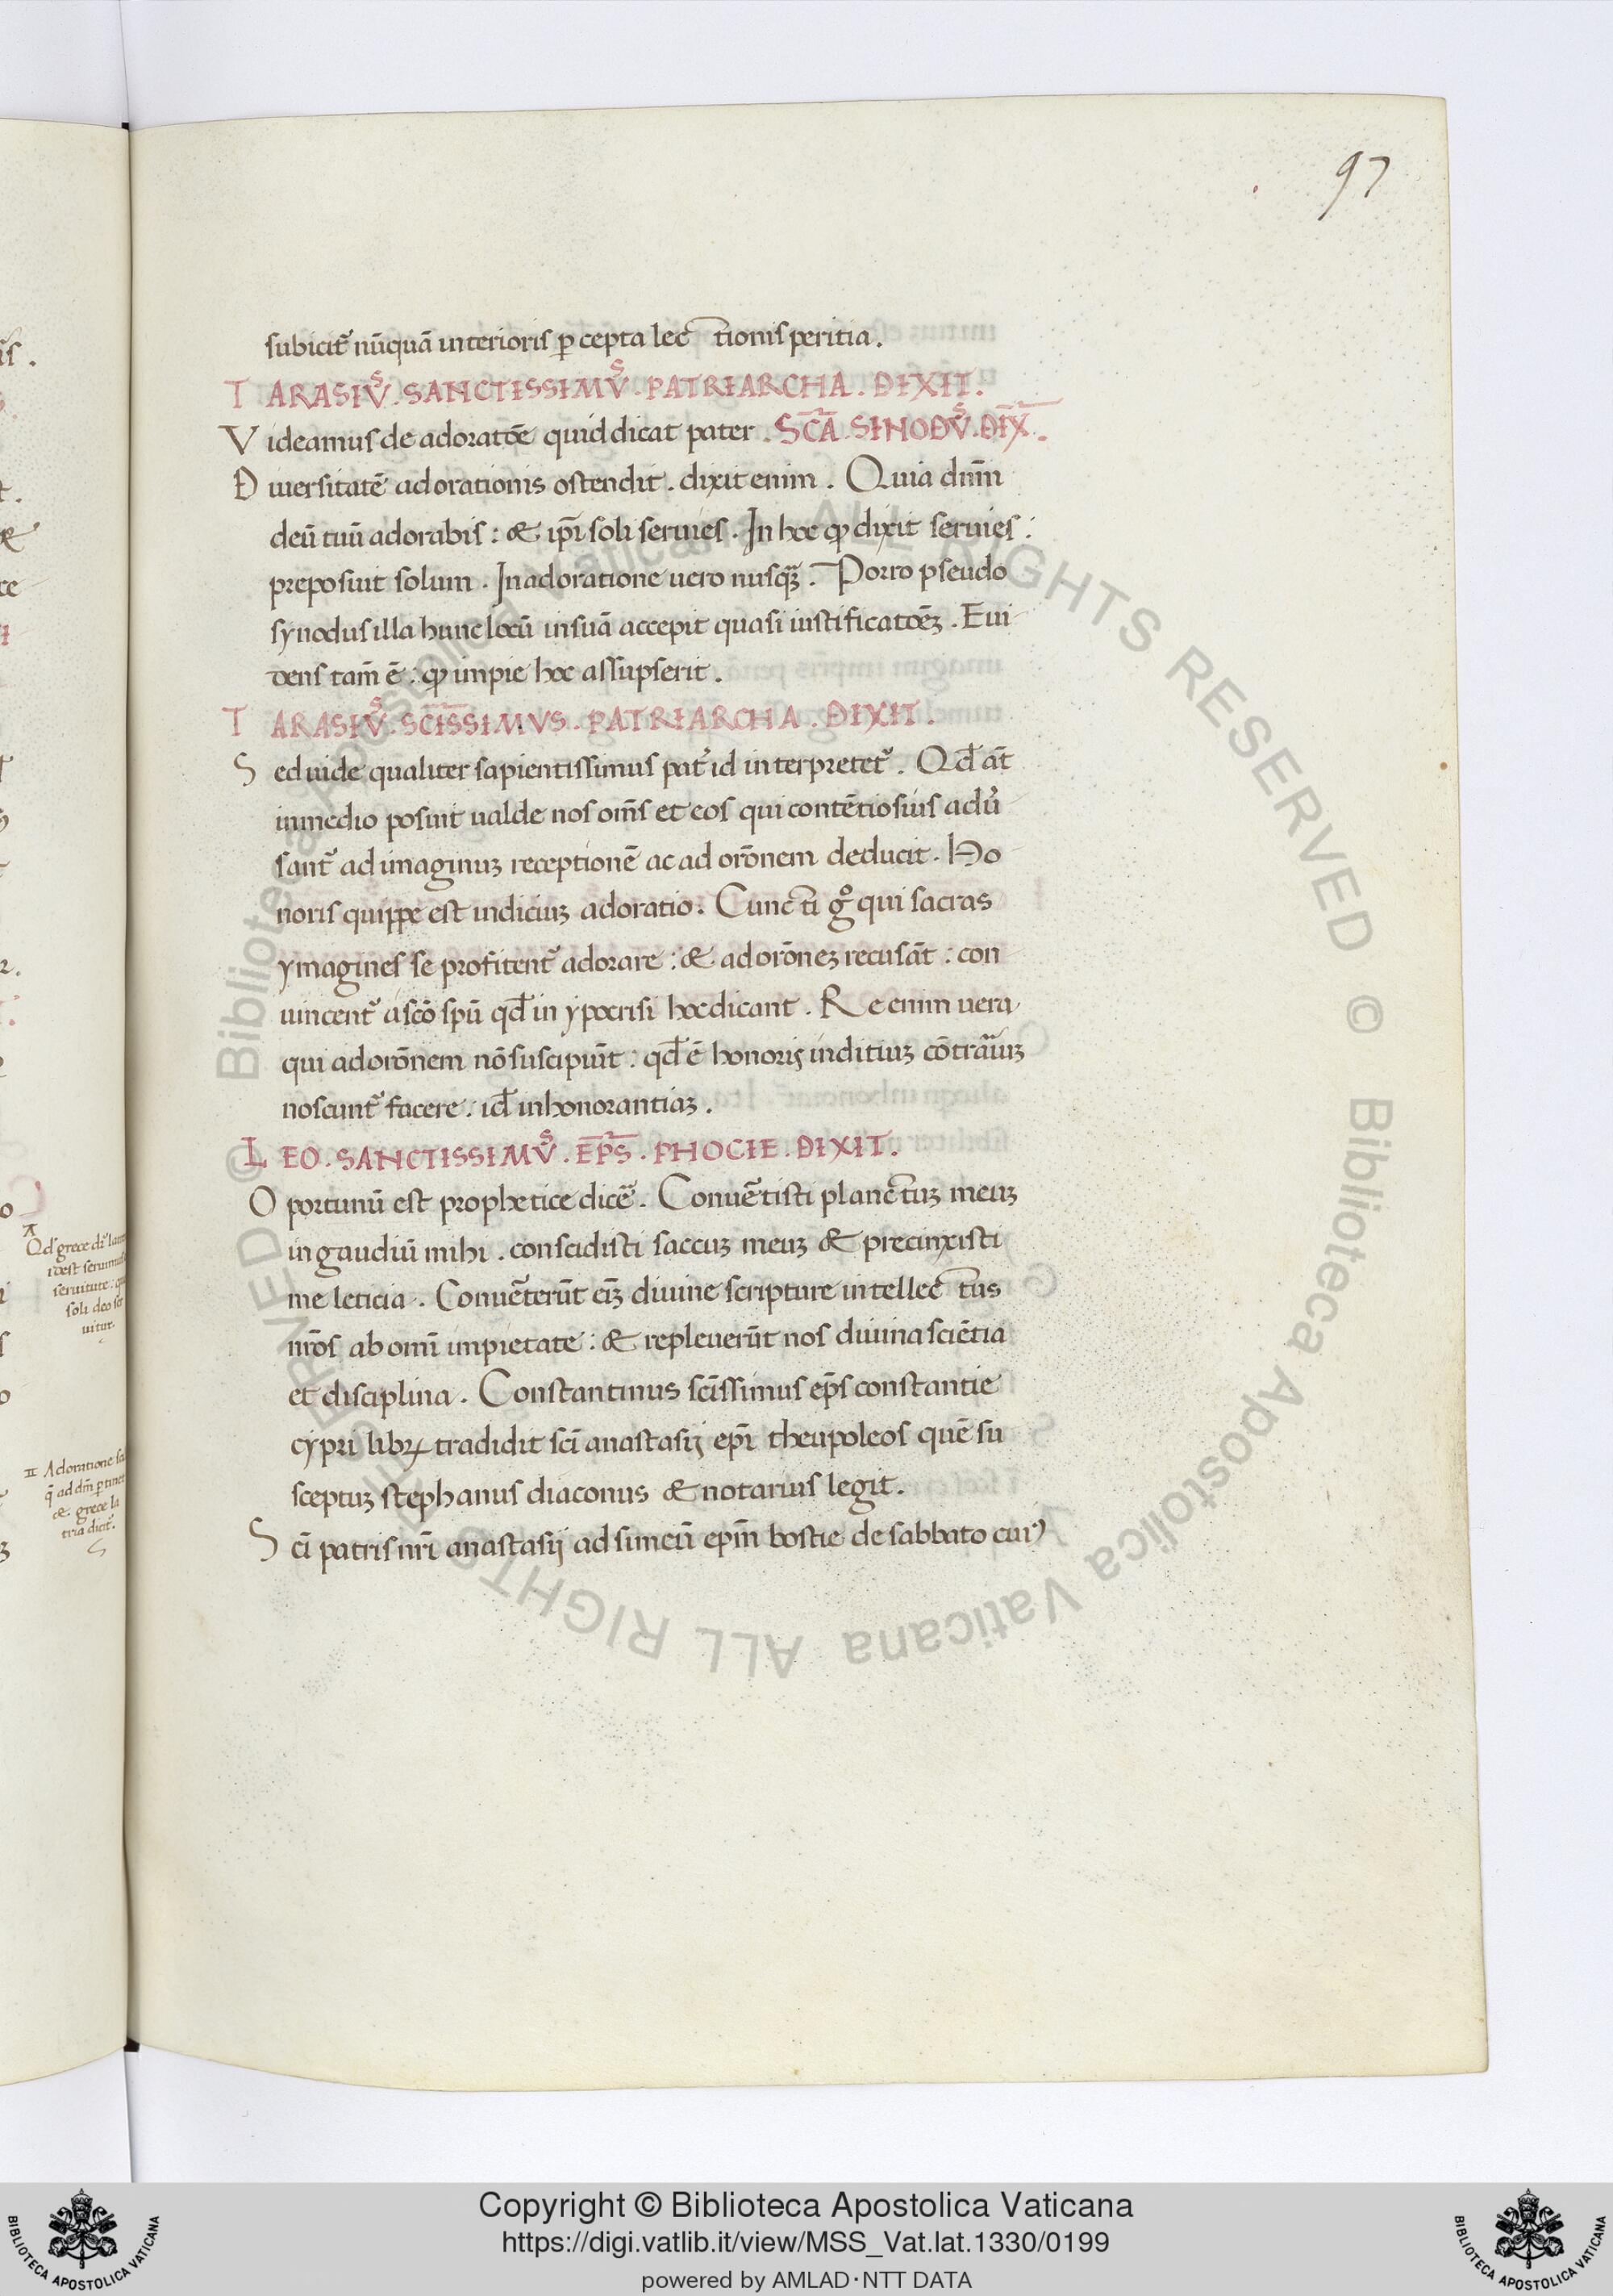 97
subicit᷑ nūquā interioris ꝑcepta lectionis peritia.
TARASIVˢ. SANCTISSIMVˢ. PATRIARCHA. DIXIT.
Videamus de adoratōe quid dicat pater. SCA̅. SINODVˢ. DIX̅.
Diuersitatē adorationis ostendit. dixit enim. Quia dnm̄
deū tuū adorabis: & ip̄i soli seruies. In hoc ꝙ dixit seruies:
preposuit solum. In adoratione uero nusqꝫ̄. Porro pseudo
synodus illa hunc locū in suā accepit quasi iustificatōeꝫ. Eui
dens tam̄ ē: ꝙ impie hoc assupserit.
TARASIVˢ. SCI̅SSIMVS. PATRIARCHA. DIXIT.
Sed uide qualiter sapientissimus pat᷑ id interpretet᷑. Qđ āt
in medio posuit ualde nos om̄s et eos qui contētiosius adu᷑
sant᷑ ad imaginuꝫ receptionē ac adorōnem deducit. Ho
noris quippe est indiciuꝫ adoratio. Cuncti gͦ qui sacras
ymagines se profitent᷑ adorare: & adorōneꝫ recusāt: con
uincent᷑ a scō spū qđ in ypocrisi hoc dicant. Re enim uera
qui adorōnem nō suscipiūt: qđ ē honoris inditiuꝫ cōtrariuꝫ
noscunt᷑ facere. id̄ inhonorantiaꝫ.
LEO. SANCTISSIMVˢ. EPS̅. PHOCIE. DIXIT.
Oportunū est prophetice dicē᷑. Conuē᷑tisti planctuꝫ meuꝫ
in gaudiū mihi. conscidisti saccuꝫ meuꝫ & precinxisti
me leticia. Conuē᷑terūt eiꝫ̄ diuine scripture intellectus
nr̄os ab om̄i impietate: & repleuerūt nos diuina sciētia
et disciplina. Constantinus scīssimus ep̄s constantie
cypri libꝝ tradidit sc̄i anastasij ep̄i theupoleos quē su
sceptuꝫ stephanus diaconus & notarius legit.
Sc̄i patris nr̄i anastasij ad simeū ep̄m bostie de sabbato cuiꝰ
A
Qd' grece
seruitute
soli deo ser
uitur.
II Adoratione
& grece la
tria dicit᷑.
© Biblioteca Apostolica Vaticana ALL RIGHTS RESERVED © Biblioteca Apostolica Vaticana ALL RIGHTS RESERVED
BIBLIOTECA APOSTOLICA VATICANA
Copyright © Biblioteca Apostolica Vaticana
https://digi.vatlib.it/view/MSS_Vat.lat.1330/0199
powered by AMLAD・NTT DATA
BIBLIOTECA APOSTOLICA VATICANA